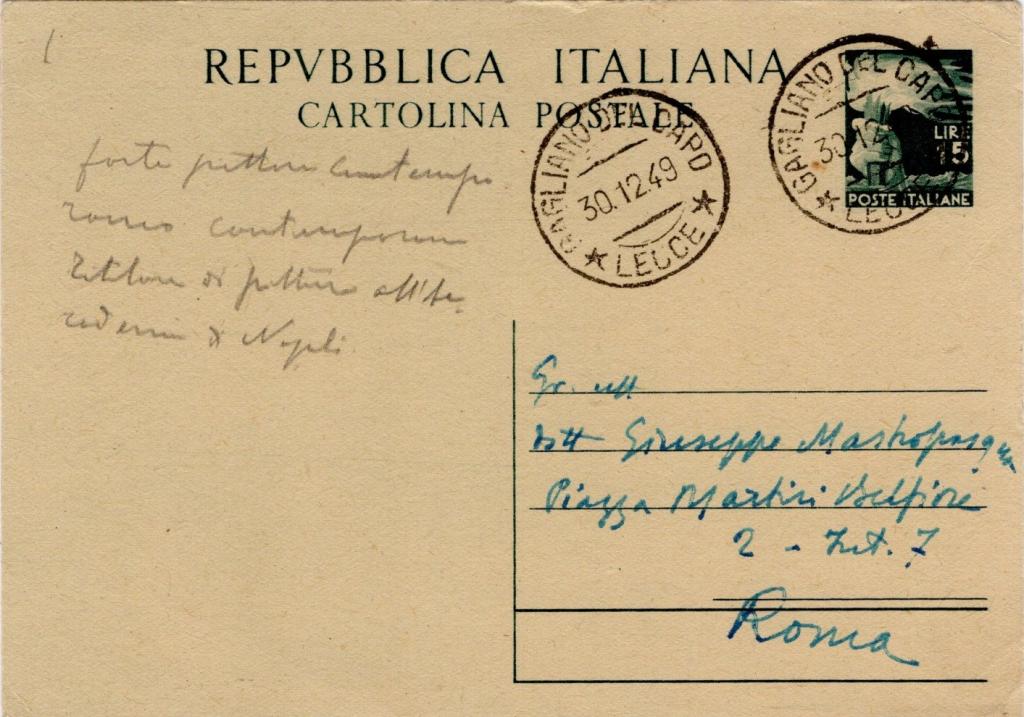 REPVBBLICA ITALIANA
CARTOLINA POSTALE
GAGLIANO DEL CAPO
30.12.49
LECCE
GAGLIANO DEL CAPO
30.12
LECCE
LIRE
15
POSTE ITALIANE
forte pittore contempo
raneo contemporaneo
di pittura all'Ac
cademia di Napoli
Gr. uff
dott Giuseppe Mastropasqua
Piazza Martiri Belfiore
2 - Int. 7
Roma